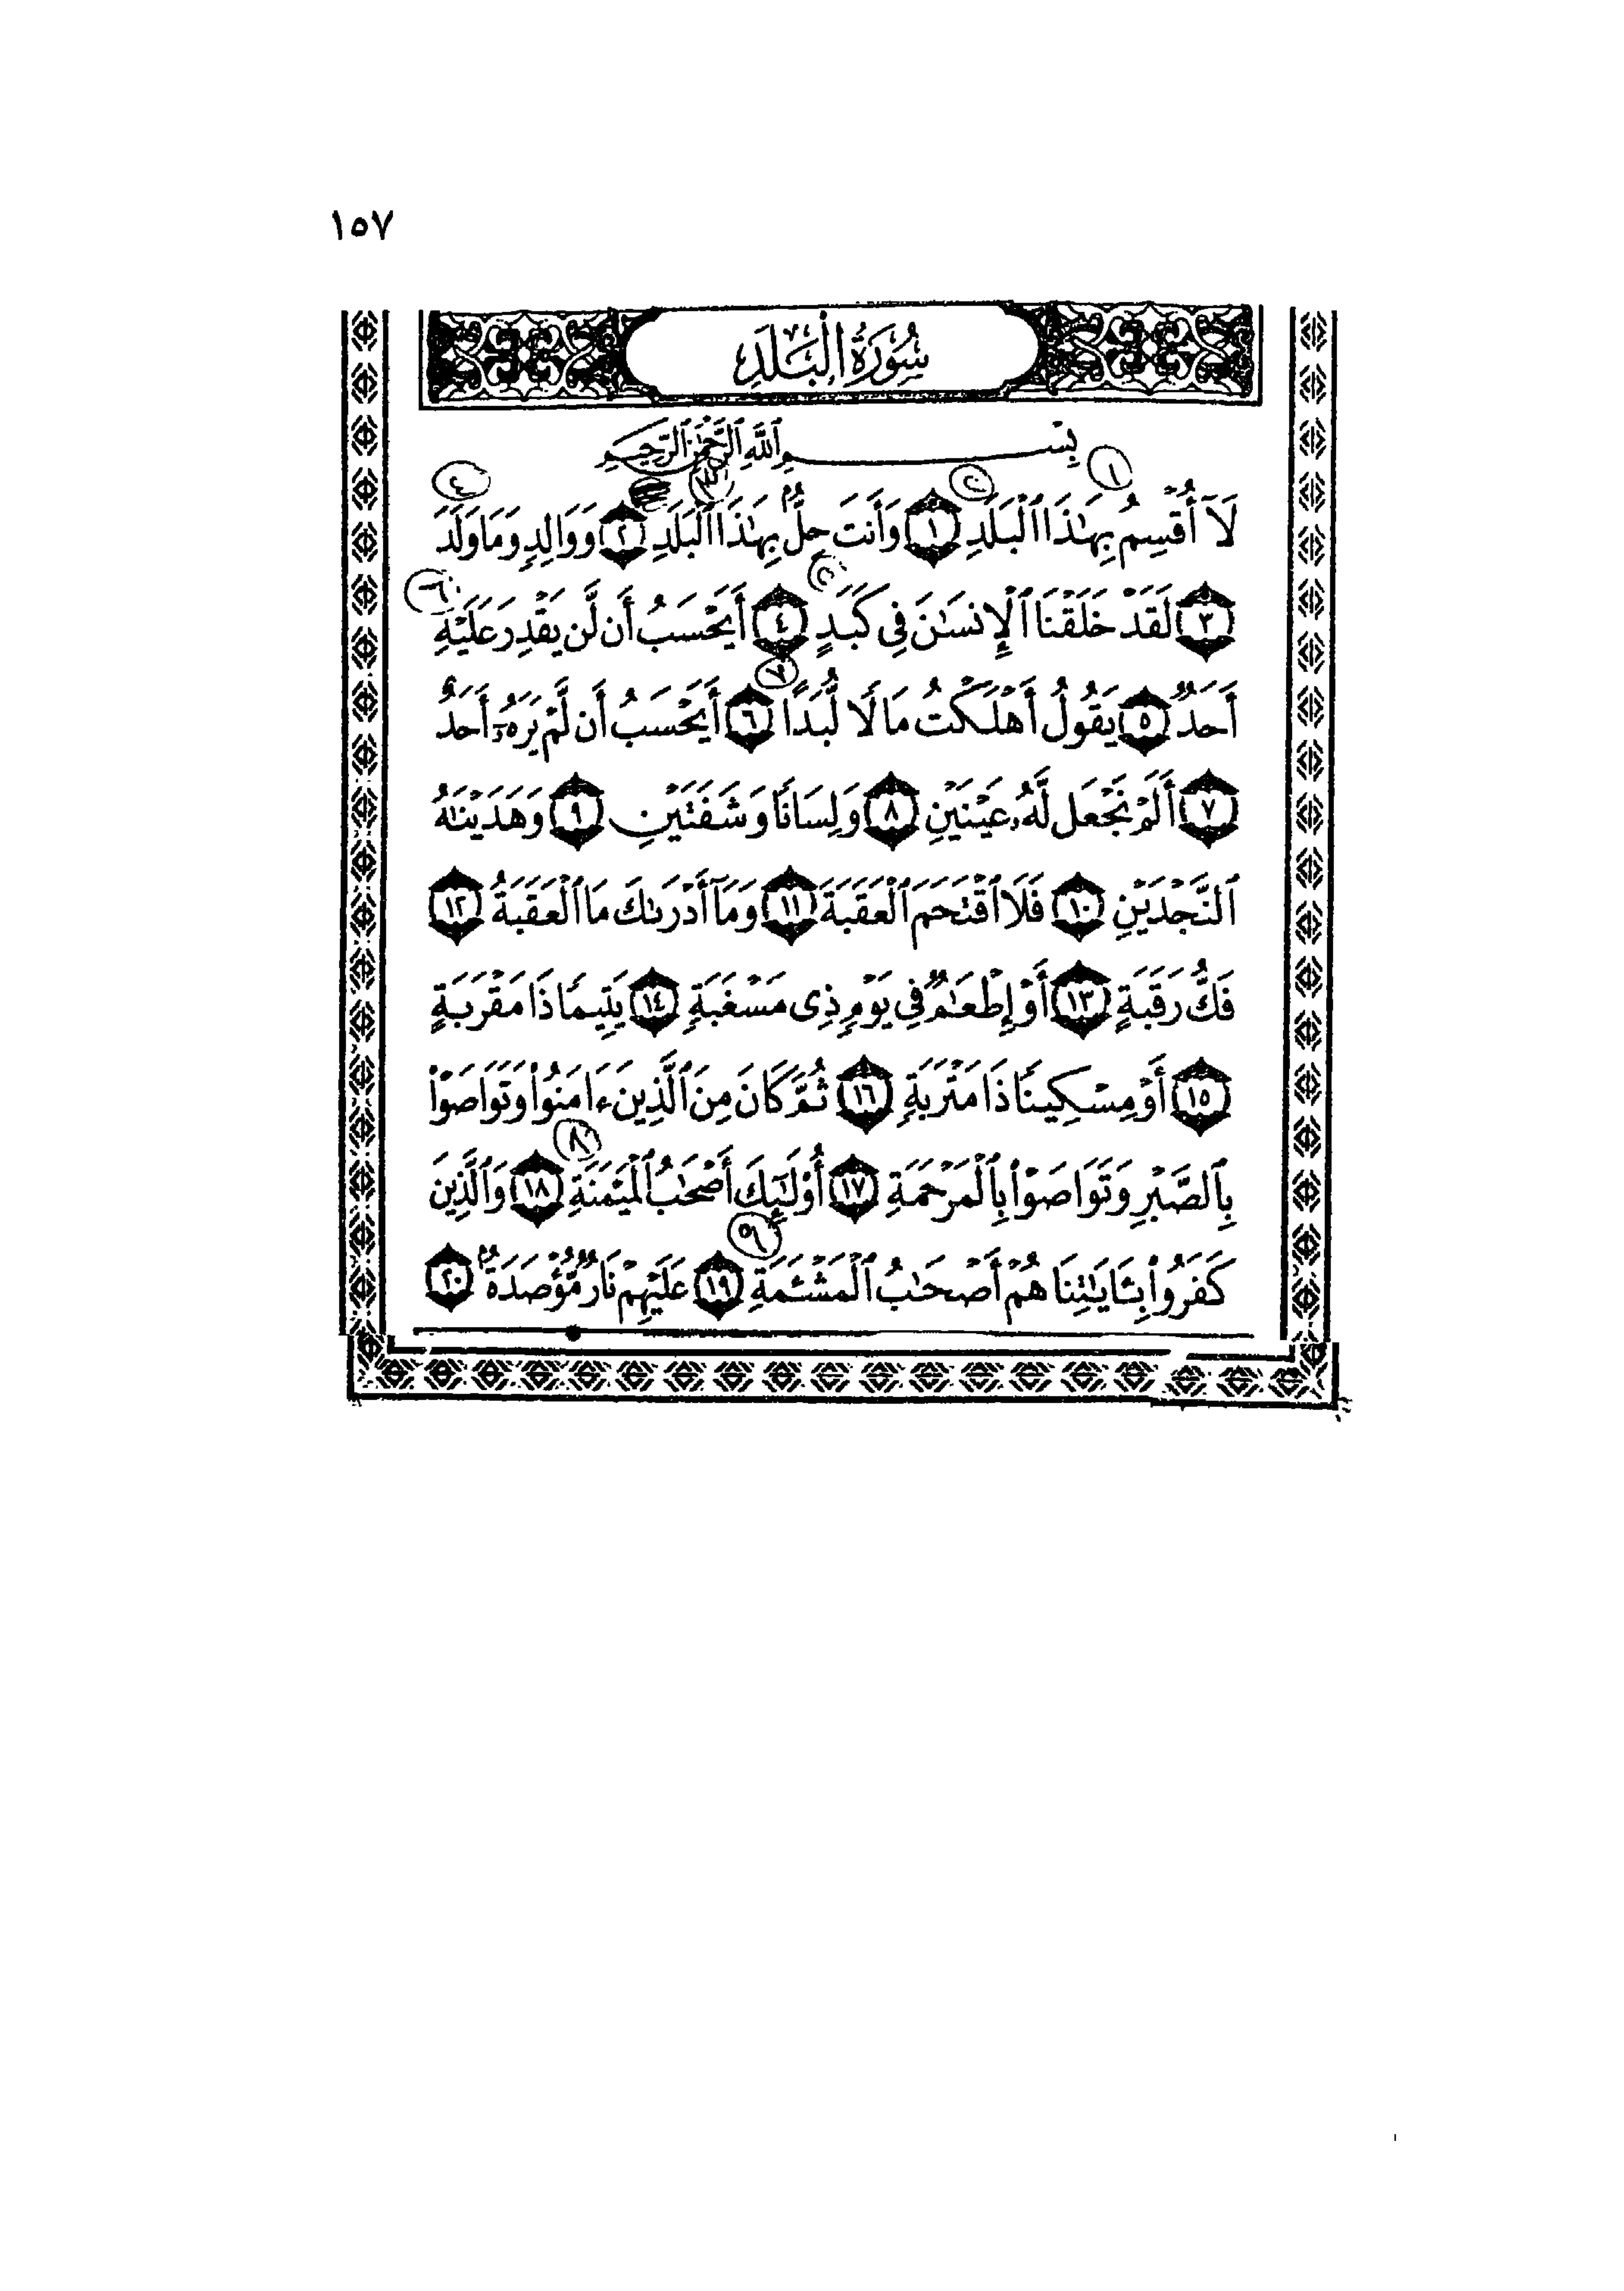 ١٥٧
سُورَةُ الْبَلَدِ
بِسْمِ ٱللَّهِ ٱلرَّحْمَٰنِ ٱلرَّحِيمِ
١
٢
٣
٤
لَآ أُقْسِمُ بِهَٰذَا ٱلْبَلَدِ ١ وَأَنتَ حِلٌّۢ بِهَٰذَا ٱلْبَلَدِ ٢ وَوَالِدٍ وَمَا وَلَدَ
٥
٦
٣ لَقَدْ خَلَقْنَا ٱلْإِنسَٰنَ فِى كَبَدٍ ٤ أَيَحْسَبُ أَن لَّن يَقْدِرَ عَلَيْهِ
٧
أَحَدٌ ٥ يَقُولُ أَهْلَكْتُ مَالًا لُّبَدًا ٦ أَيَحْسَبُ أَن لَّمْ يَرَهُۥٓ أَحَدٌ
٧ أَلَمْ نَجْعَل لَّهُۥ عَيْنَيْنِ ٨ وَلِسَانًا وَشَفَتَيْنِ ٩ وَهَدَيْنَٰهُ
ٱلنَّجْدَيْنِ ١٠ فَلَا ٱقْتَحَمَ ٱلْعَقَبَةَ ١١ وَمَآ أَدْرَىٰكَ مَا ٱلْعَقَبَةُ ١٢
فَكُّ رَقَبَةٍ ١٣ أَوْ إِطْعَٰمٌ فِى يَوْمٍ ذِى مَسْغَبَةٍ ١٤ يَتِيمًا ذَا مَقْرَبَةٍ
١٥ أَوْ مِسْكِينًا ذَا مَتْرَبَةٍ ١٦ ثُمَّ كَانَ مِنَ ٱلَّذِينَ ءَامَنُوا۟ وَتَوَاصَوْا۟
٨
بِٱلصَّبْرِ وَتَوَاصَوْا۟ بِٱلْمَرْحَمَةِ ١٧ أُو۟لَٰٓئِكَ أَصْحَٰبُ ٱلْمَيْمَنَةِ ١٨ وَٱلَّذِينَ
٩
كَفَرُوا۟ بِـَٔايَٰتِنَا هُمْ أَصْحَٰبُ ٱلْمَشْـَٔمَةِ ١٩ عَلَيْهِمْ نَارٌ مُّؤْصَدَةٌۢ ٢٠